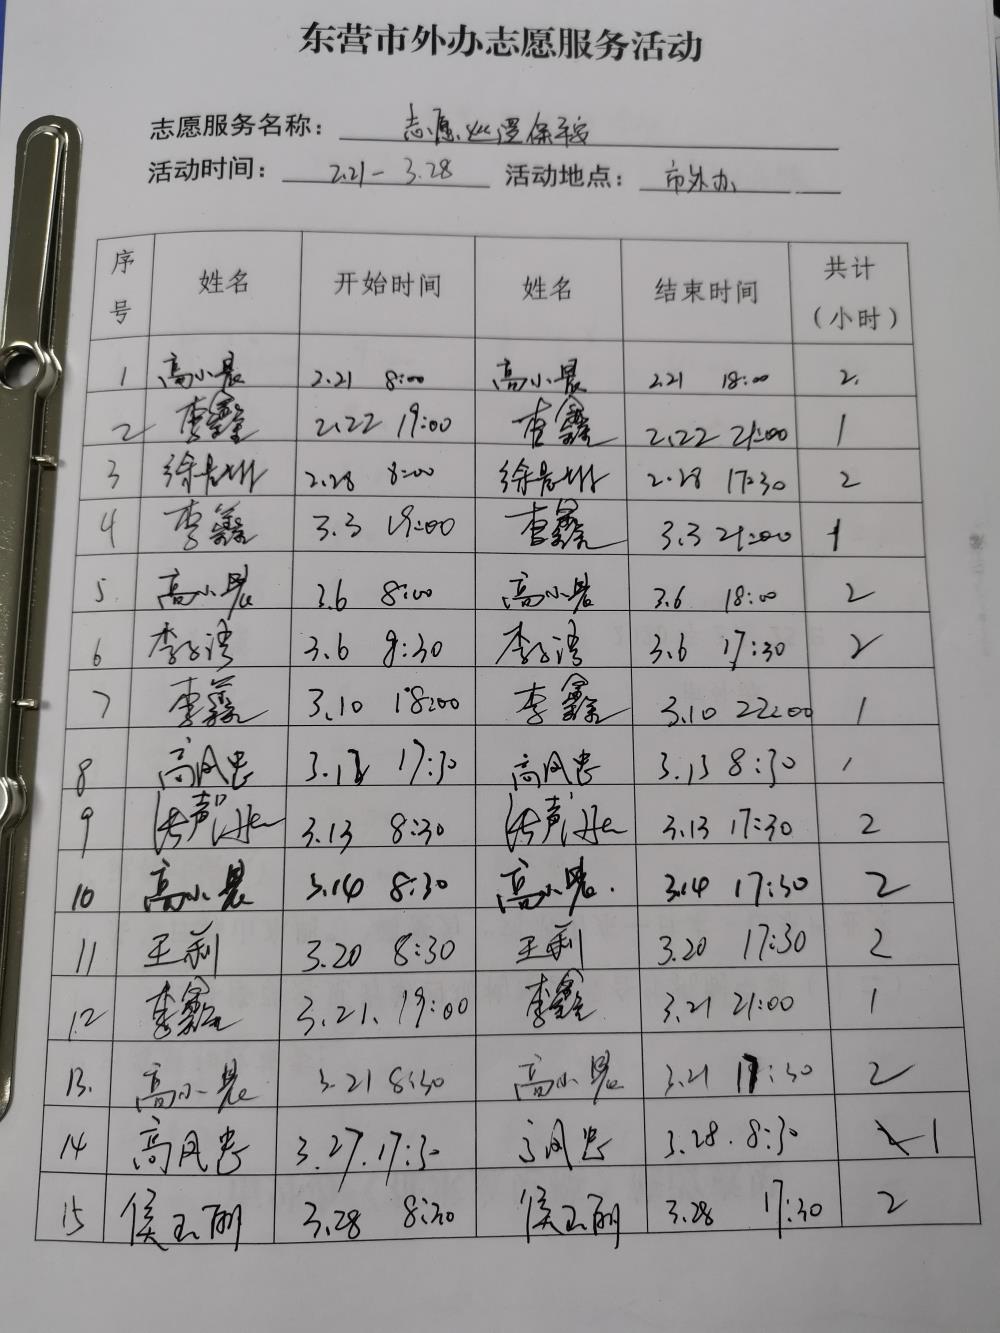 东营市外办志愿服务活动
志愿服务名称： 志愿巡逻保平安
活动时间： 2.21-3.28 活动地点： 市外办
序号 姓名 开始时间 姓名 结束时间 共计（小时）
1 高小晨 2.21 8:00 高小晨 2.21 18:00 2.
2 李鑫 2.22 19:00 李鑫 2.22 21:00 1
3 2.28 8:00 2.28 17:30 2
4 李鑫 3.3 19:00 李鑫 3.3 21:00 1
5. 高小晨 3.6 8:00 高小晨 3.6 18:00 2
6 3.6 8:30 3.6 17:30 2
7 李鑫 3.10 18:00 李鑫 3.10 22:00 1
8 高凤忠 17:30 高凤忠 3.13 8:30 1
9 3.13 8:30 3.13 17:30 2
10 高小晨 3.14 8:30 高小晨. 3.14 17:30 2
11 王利 3.20 8:30 王利 3.20 17:30 2
12 李鑫 3.21. 19:00 李鑫 3.21 21:00 1
13. 高小晨 3.21 8:30 高小晨 3.21 17:30 2
14 高凤忠 3.27. 17:30 高凤忠 3.28. 8:30 1
15 侯玉丽 3.28 8:30 侯玉丽 3.28 17:30 2